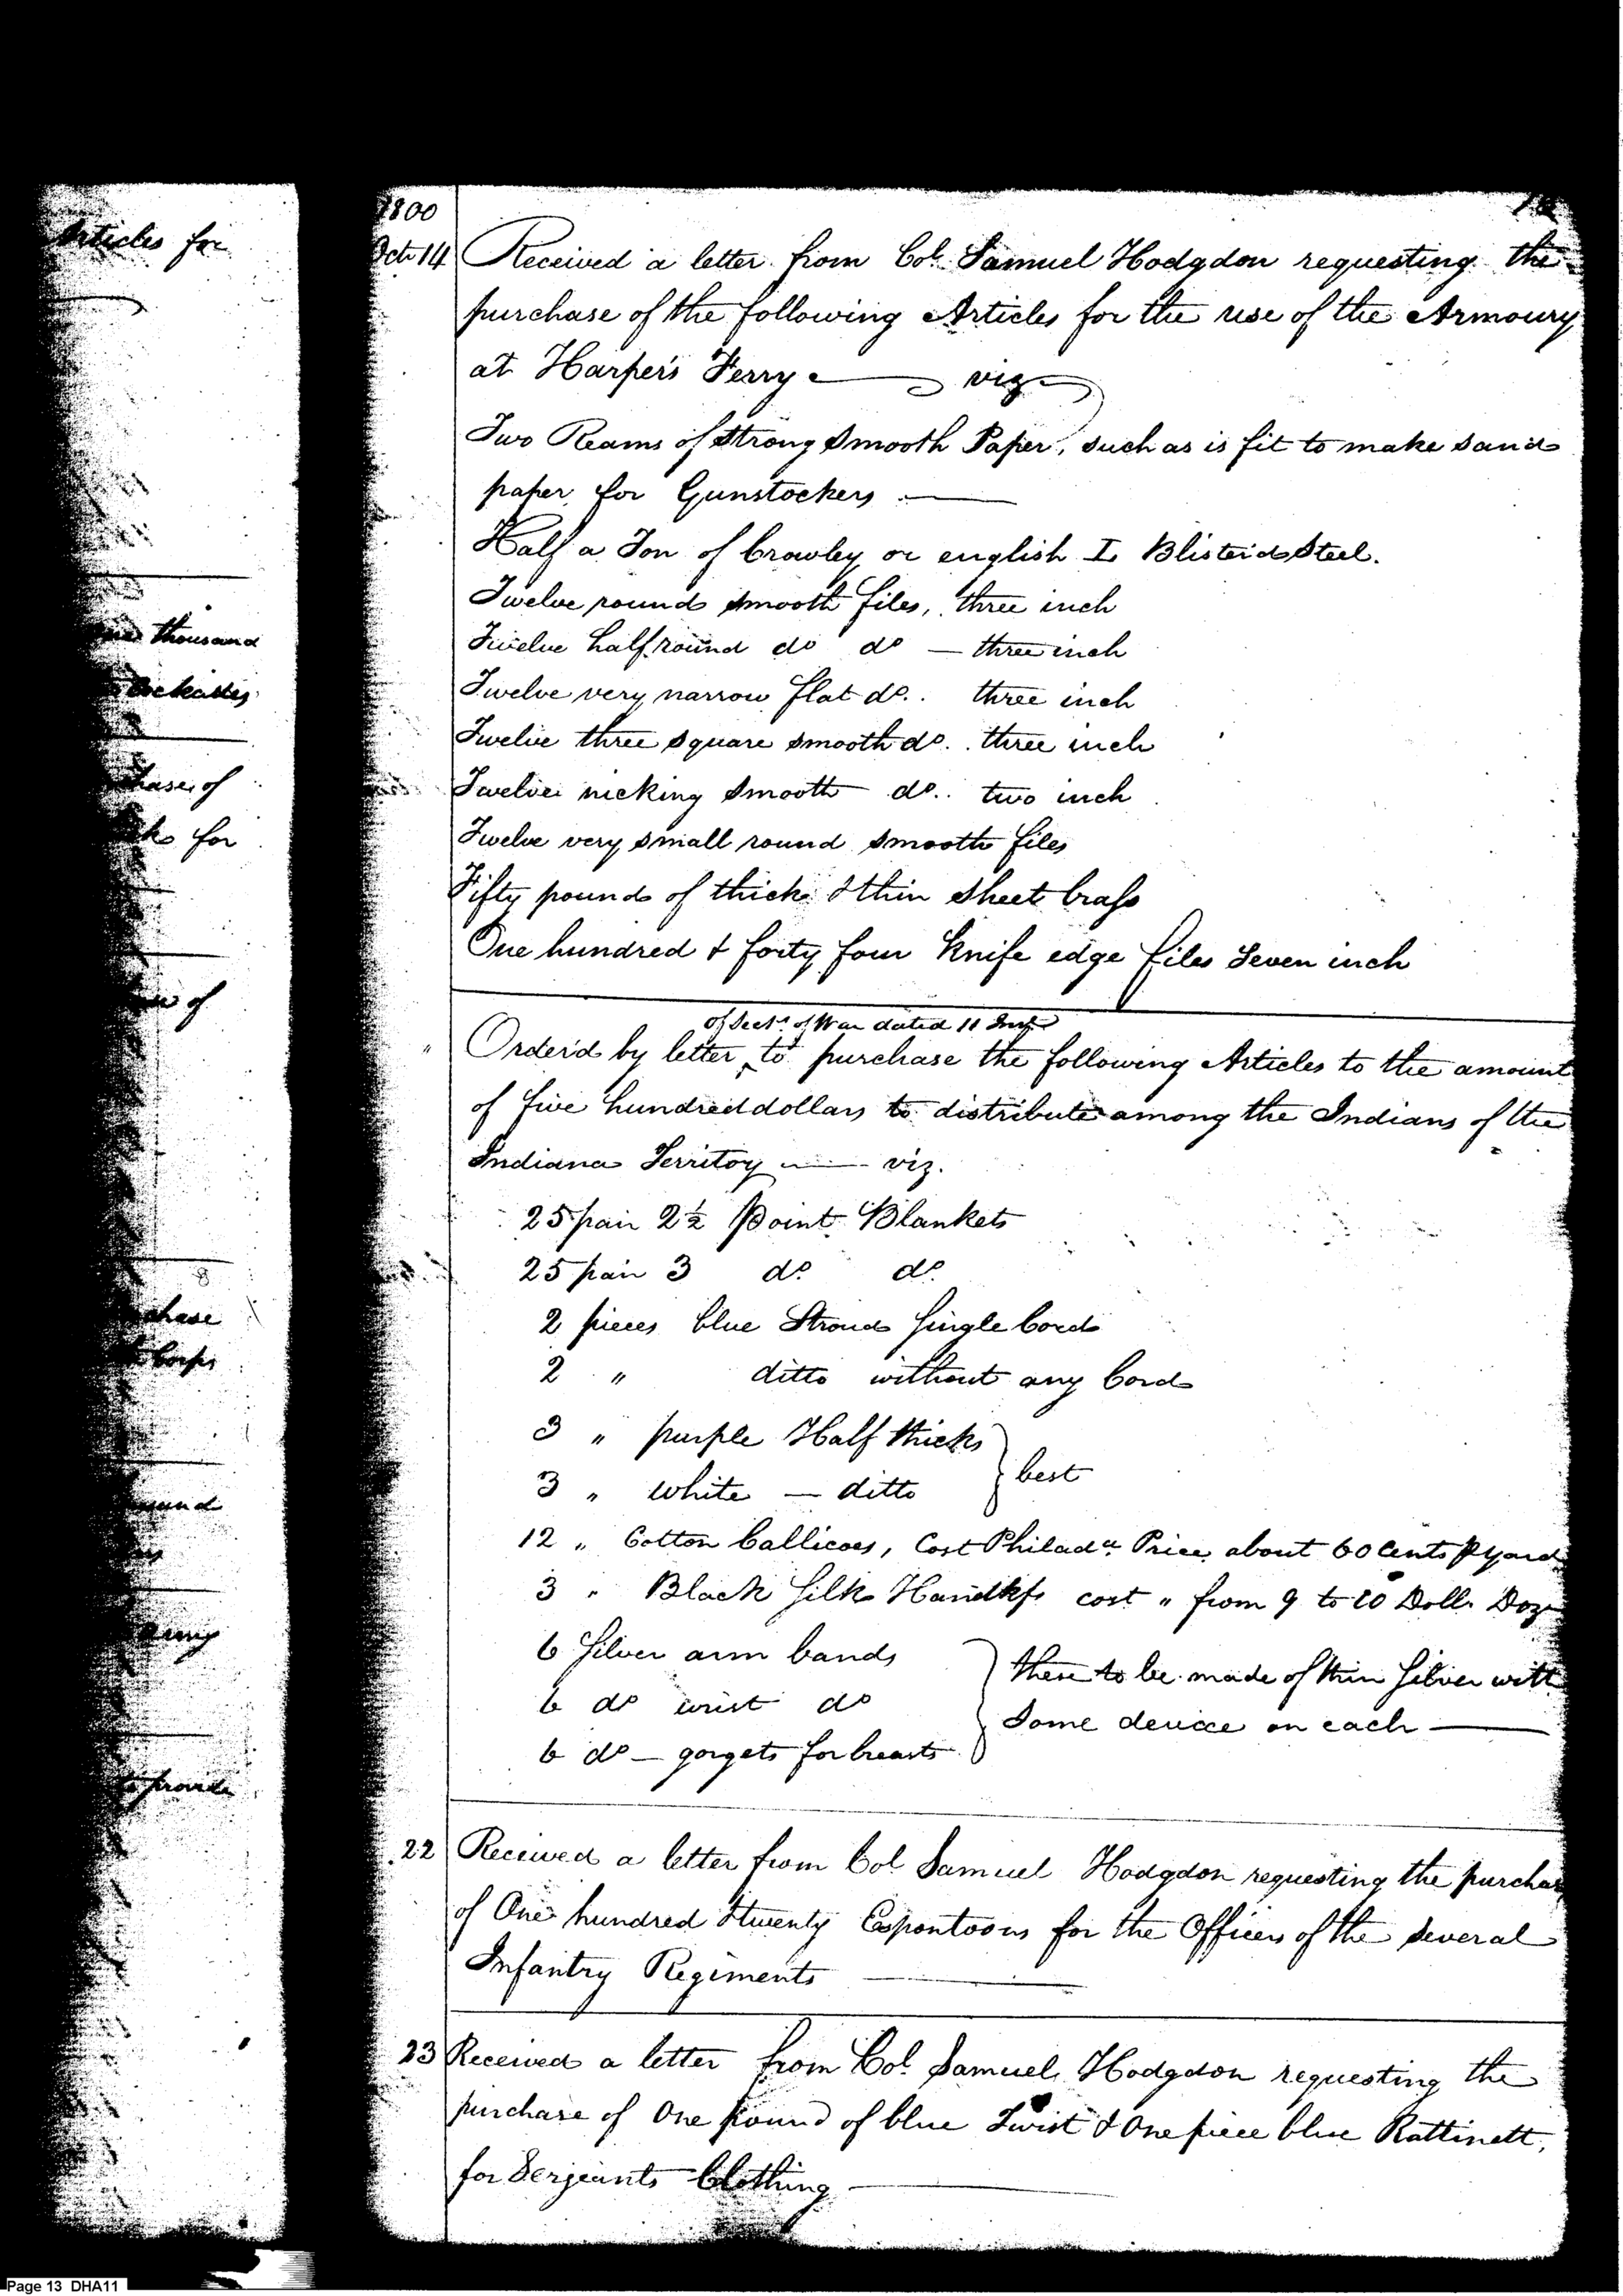 Articles for
thousand
Cockades
chase of
for
of
chase
Corps
provide
1800
Oct 14 Received a letter from Col. Samuel Hodgdon requesting the
purchase of the following Articles for the use of the Armoury
at Harper's Ferry — viz
Two Reams of strong smooth Paper, such as is fit to make sand
paper for Gunstockers —
Half a Ton of Crowley or english I Blister'd Steel.
Twelve round smooth files, three inch
Twelve half round do do — three inch
Twelve very narrow flat do. three inch
Twelve three square smooth do. three inch
Twelve nicking smooth do. two inch
Twelve very small round smooth files
Fifty pounds of thick & thin sheet brass
One hundred & forty four knife edge files Seven inch
of Secy. of War dated 11 Inst
" Order'd by letter ‸ to purchase the following Articles to the amount
of five hundred dollars to distribute among the Indians of the
Indiana Territoy — viz.
25 pair 2½ Point Blankets
25 pair 3 do. do.
2 pieces blue Stroud Single Cord
2 " ditto without any Cord
3 " purple Half thicks
3 " white — ditto } best
12 " Cotton Callicoes, Cost Philada. Price about 60 Cents ⅌ yard
3 " Black Silk Handkfs cost " from 9 to 10 Dolls. Doz
6 Silver arm bands
6 do wrist do
6 do — gorgets for breasts
} these to be made of thin Silver with
some device on each —
22 Received a letter from Col Samuel Hodgdon requesting the purchas
of One hundred & twenty Espontoons for the Officers of the several
Infantry Regiments —
23 Received a letter from Col. Samuel Hodgdon requesting the
purchase of One pound of blue Twist & One piece blue Rattinett,
for Serjeants Clothing —
Page 13 DHA11